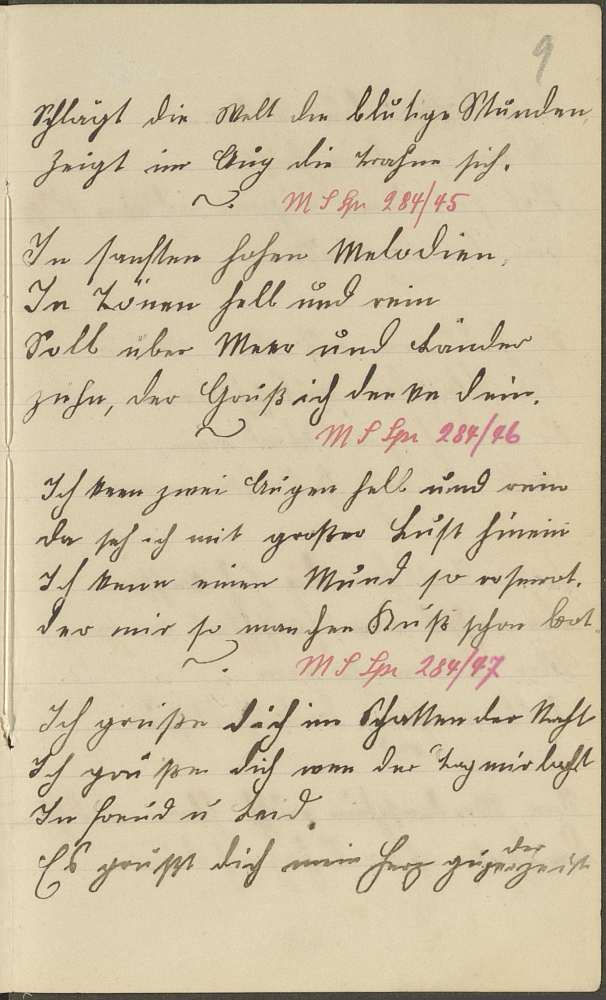 9
Schlägt die Welt die blutige Wunden,
zeigt im Aug die trähne sich.
M S Spr 284/45
In sanften hohen Melodien,
In Tönen hell und rein
Soll über Meer und Länder
ziehn, der Gruß ich denke dein.
M S Spr 284/46
Ich kenn zwei Augen hell und rein
da seh ich mit großer Lust hinein
Ich kenne einen Mund so rosenrot.
der mir so manchen Kuß schon bot
M S Spr 284/47
Ich grüße dich im Schatten der Nacht
Ich grüße dich wen der Tag mir lacht
In Freud u Leid.
Es grüßt dich mein Herz
der